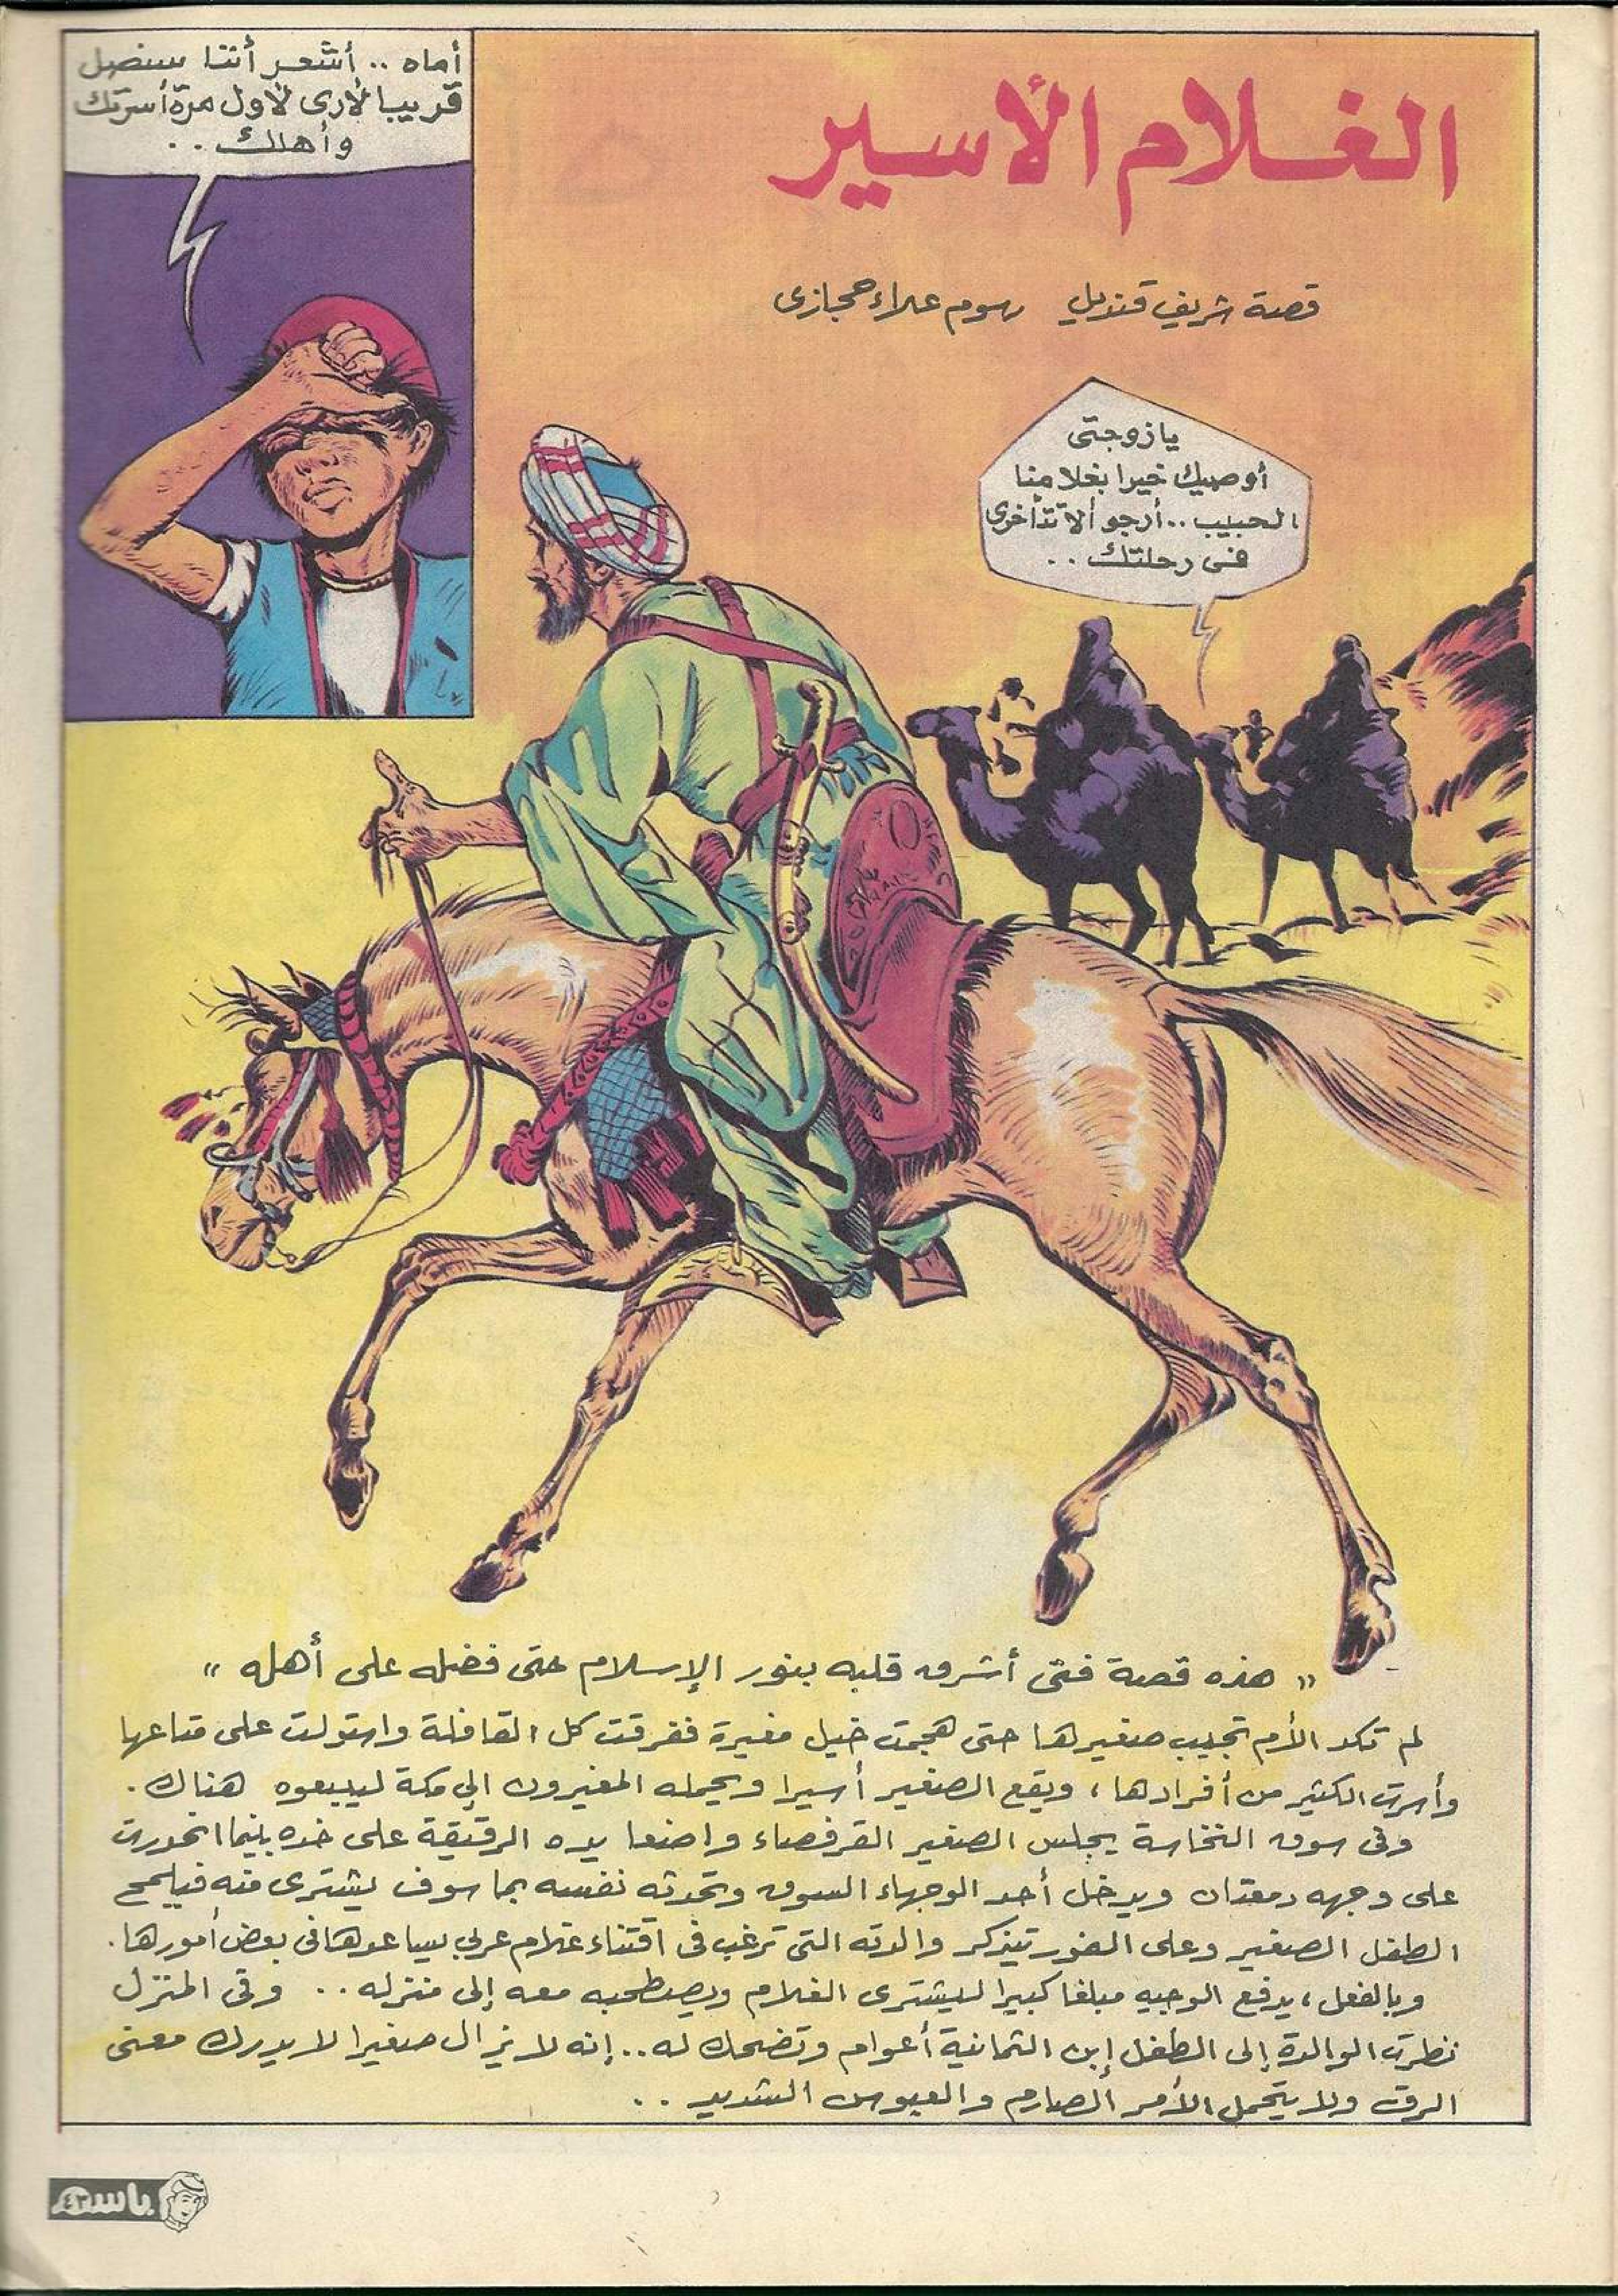 الغلام الأسير
قصة شريف قنديل رسوم علاء حجازى
يا زوجتى
أوصيك خيرا بغلامنا
الحبيب.. أرجو ألا تتأخرى
فى رحلتك..
أماه.. أشعر أننا سنصل
قريبا لأرى لأول مرة أسرتك
وأهلك..
« هذه قصة فتى أشرق قلبه بنور الإسلام حتى فضله على أهله »
لم تكد الأم تجيب صغيرها حتى هجمت خيل مغيرة ففرقت كل القافلة واستولت على متاعها
وأسرت الكثير من أفرادها، ويقع الصغير أسيرا ويحمله المغيرون إلى مكة ليبيعوه هناك.
وفى سوق النخاسة يجلس الصغير القرفصاء واضعا يده الرقيقة على خده بينما انحدرت
على وجهه دمعتان ويدخل أحد الوجهاء السوق وتحدثه نفسه بما سوف يشترى منه فيلمح
الطفل الصغير وعلى الفور تيذكر والدته التى ترغب فى اقتناء غلام عربي يساعدها فى بعض أمورها.
وبالفعل، يدفع الوجيه مبلغا كبيرا ليشترى الغلام ويصطحبه معه إلى منزله.. وفى المنزل
نظرت الوالدة إلى الطفل إبن الثمانية أعوام وتضحك له.. إنه لا يزال صغيرا لا يدرك معنى
الرق ولا يتحمل الأمر الصارم والعبوس الشديد..
باسم
٤٣